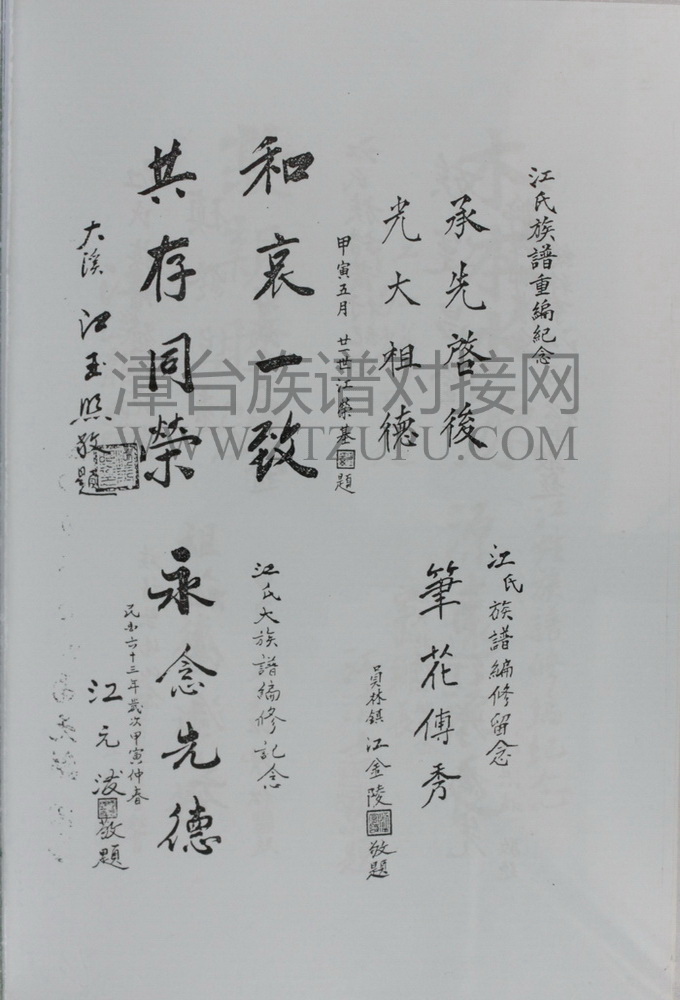 江氏族譜重編紀念
承先啓後
光大祖德
甲寅五月 廿世江榮基題
和衷一致
共存同榮
大溪 江玉照敬題
江氏族譜編修留念
筆花傳秀
員林鎮 江金陵 敬題
江氏大族譜編修記念
永念先德
民國六十三年歲次甲寅仲春
江元 敬題
漳台族谱对接网
WWW.ZTZUPU.COM